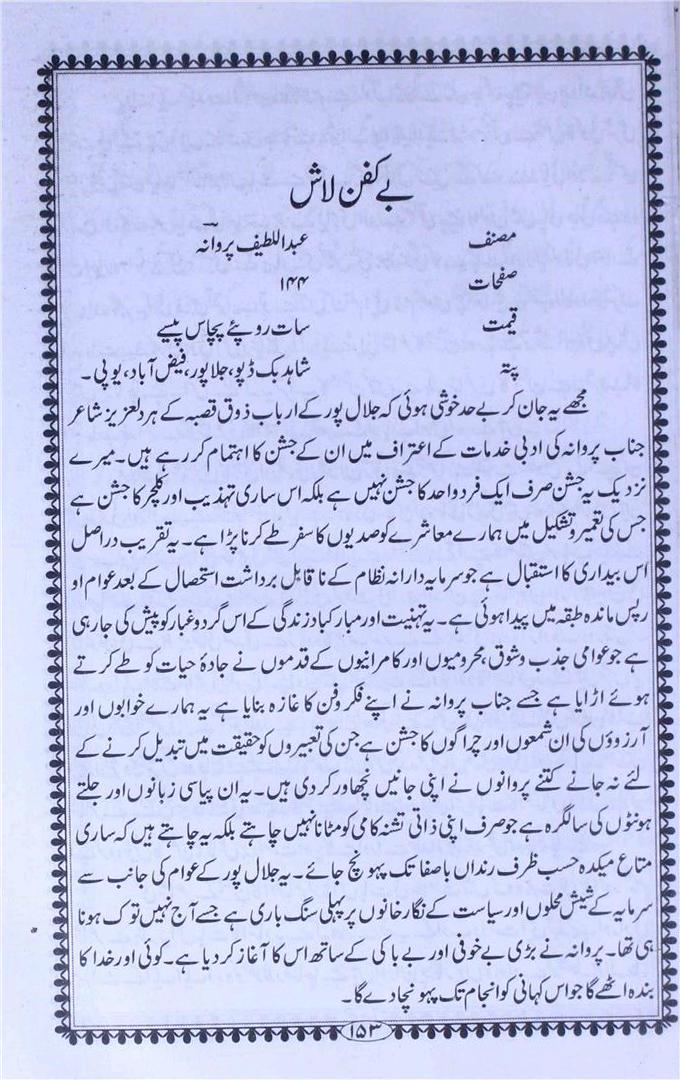 بے کفن لاش
مصنف عبداللطیف پروانہ
صفحات ۱۴۴
قیمت سات روپئے پچاس پیسے
پتہ شاہد بک ڈپو، جلاپور، فیض آباد، یوپی۔
مجھے یہ جان کر بے حد خوشی ہوئی کہ جلال پور کے ارباب ذوق قصبہ کے ہردلعزیز شاعر
جناب پروانہ کی ادبی خدمات کے اعتراف میں ان کے جشن کا اہتمام کر رہے ہیں۔ میرے
نزدیک یہ جشن صرف ایک فرد واحد کا جشن نہیں ہے بلکہ اس ساری تہذیب اور کلچر کا جشن ہے
جس کی تعمیر و تشکیل میں ہمارے معاشرے کو صدیوں کا سفر طے کرنا پڑا ہے۔ یہ تقریب دراصل
اس بیداری کا استقبال ہے جو سرمایہ دارانہ نظام کے ناقابل برداشت استحصال کے بعد عوام او
رپس ماندہ طبقہ میں پیدا ہوئی ہے۔ یہ تہنیت اور مبارکباد زندگی کے اس گرد و غبار کو پیش کی جارہی
ہے جو عوامی جذب و شوق، محرومیوں اور کامرانیوں کے قدموں نے جادۂ حیات کو طے کرتے
ہوئے اڑایا ہے جسے جناب پروانہ نے اپنے فکر فن کا غازہ بنایا ہے یہ ہمارے خوابوں اور
آرزوؤں کی ان شمعوں اور چراگوں کا جشن ہے جن کی تعبیروں کو حقیقت میں تبدیل کرنے کے
لئے نہ جانے کتنے پروانوں نے اپنی جانیں نچھاور کر دی ہیں۔ یہ ان پیاسی زبانوں اور جلتے
ہونٹوں کی سالگرہ ہے جو صرف اپنی ذاتی تشنہ کامی کو مٹانا نہیں چاہتے بلکہ یہ چاہتے ہیں کہ ساری
متاع میکدہ حسب ظرف رنداں باصفا تک پہونچ جائے۔ یہ جلال پور کے عوام کی جانب سے
سرمایہ کے شیش محلوں اور سیاست کے نگار خانوں پر پہلی سنگ باری ہے جسے آج نہیں تو ک ہونا
ہی تھا۔ پروانہ نے بڑی بے خوفی اور بے باکی کے ساتھ اس کا آغاز کر دیا ہے۔ کوئی اور خدا کا
بندہ اٹھے گا جو اس کہانی کو انجام تک پہونچا دے گا۔
۱۵۳